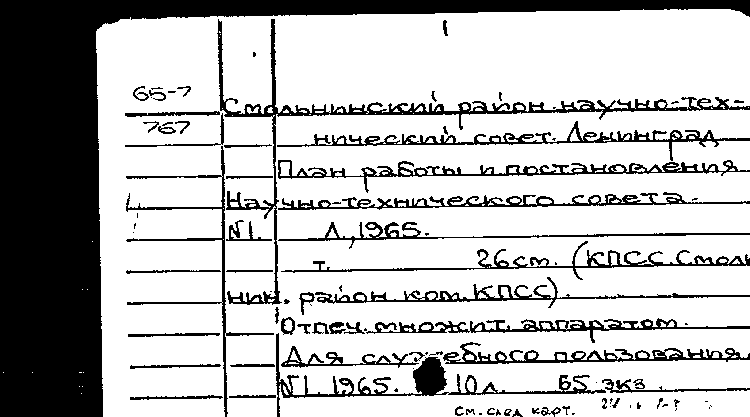 65-7
Смольнинский район. научно-тех-
767
нический совет. Ленинград
План работы и постановления
Научно-технического совета.
№1. Л., 1965.
т. 26 см. (КПСС. Смоль
нин. район. ком. КПСС).
Отпеч. множит. аппаратом.
Для служебного пользования.
№1. 1965. 10 л. 65 экз.
см. след. карт.